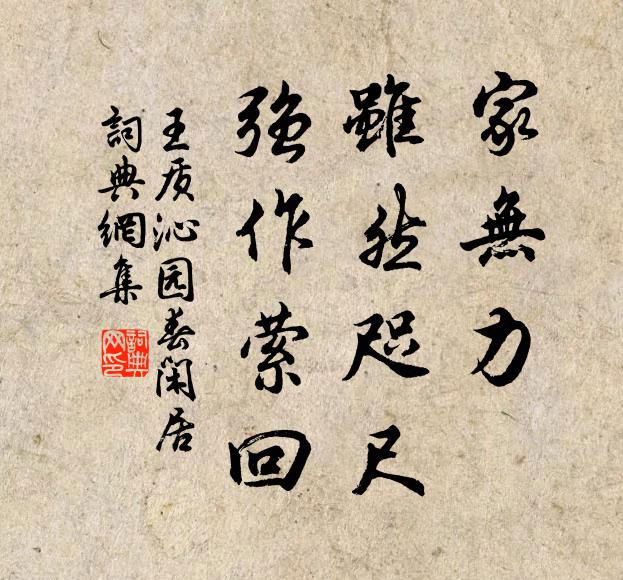 家無力
雖然咫尺
強作縈回
王质沁园春閑居
詞典網集
詞典
网印